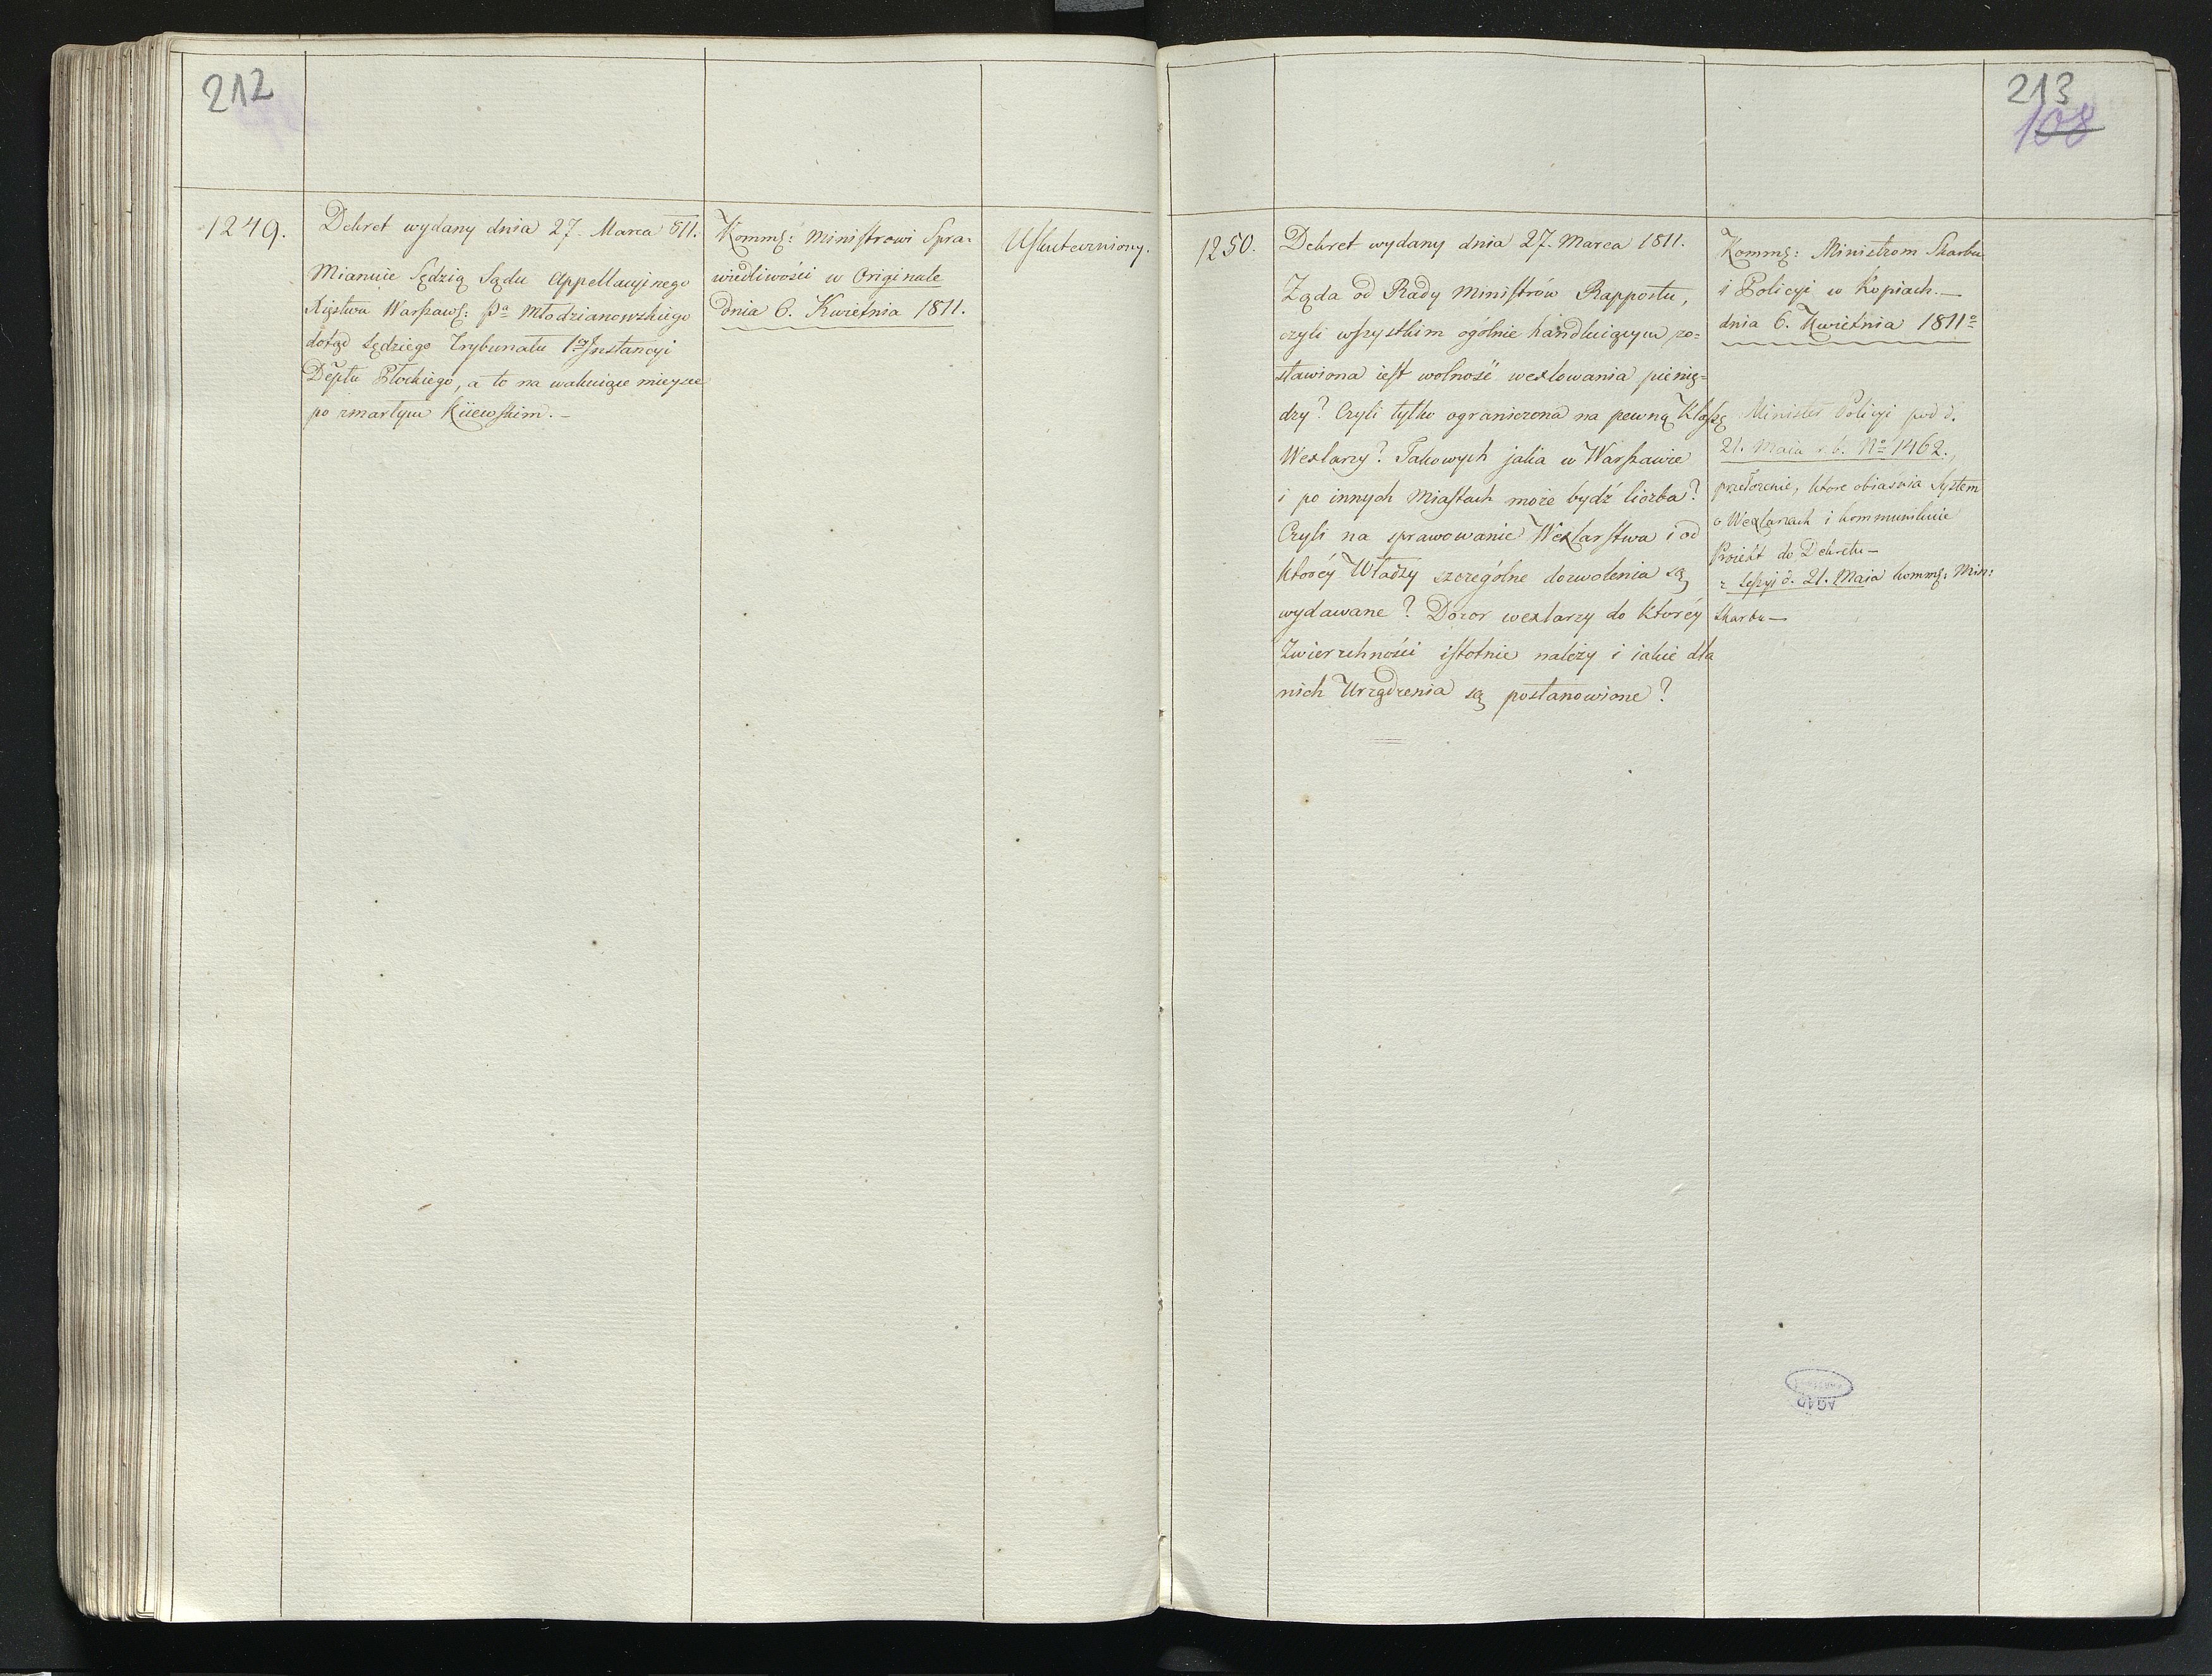 212
1249.
Dekret wydany dnia 27. Marca 811.
Mianuie Sędzią Sądu Appellacyjnego
Xięstwa Warszaws: Pa Młodzianowskiego
dotąd Sędziego Trybunału 1ey Instancyi
Deptu Płockiego, a to na wakuiące mieysce
po zmarłym Kiiewskim. –
Komms: Ministrowi Spra-
wiedliwości w Originale
dnia 6. Kwietnia 1811.
Uskuteczniony.
213
108
1250.
Dekret wydany dnia 27. Marca 1811.
Żąda od Rady Ministrów Rapportu,
czyli wszystkim ogólnie handluiącym zo=
stawiona iest wolność wexlowania pienię=
dzy? Czyli tylko ograniczona na pewną Klassę
Wexlarzy? Takowych jaka w Warszawie
i po innych Miastach może bydź liczba?
Czyli na sprawowanie Wexlarstwa i od
którey Władzy szczególne dozwolenia są
wydawane? Dozor wexlarzy do którey
Zwierzchności istotnie należy i iakie dla
nich Urządzenia są postanowione?
Komms: Ministrom Skarbu
i Policyi w Kopiach. –
dnia 6. Kwietnia 1811o
Minister Policyi pod d.
21. Maia r. b. No 1462.,
przełożenie, które obiaśnia System
o Wexlarzach i kommunikuie
Proiekt do Dekretu –
z Sessyi d. 21. Maia komms: Min:
Skarbu –
AGAD